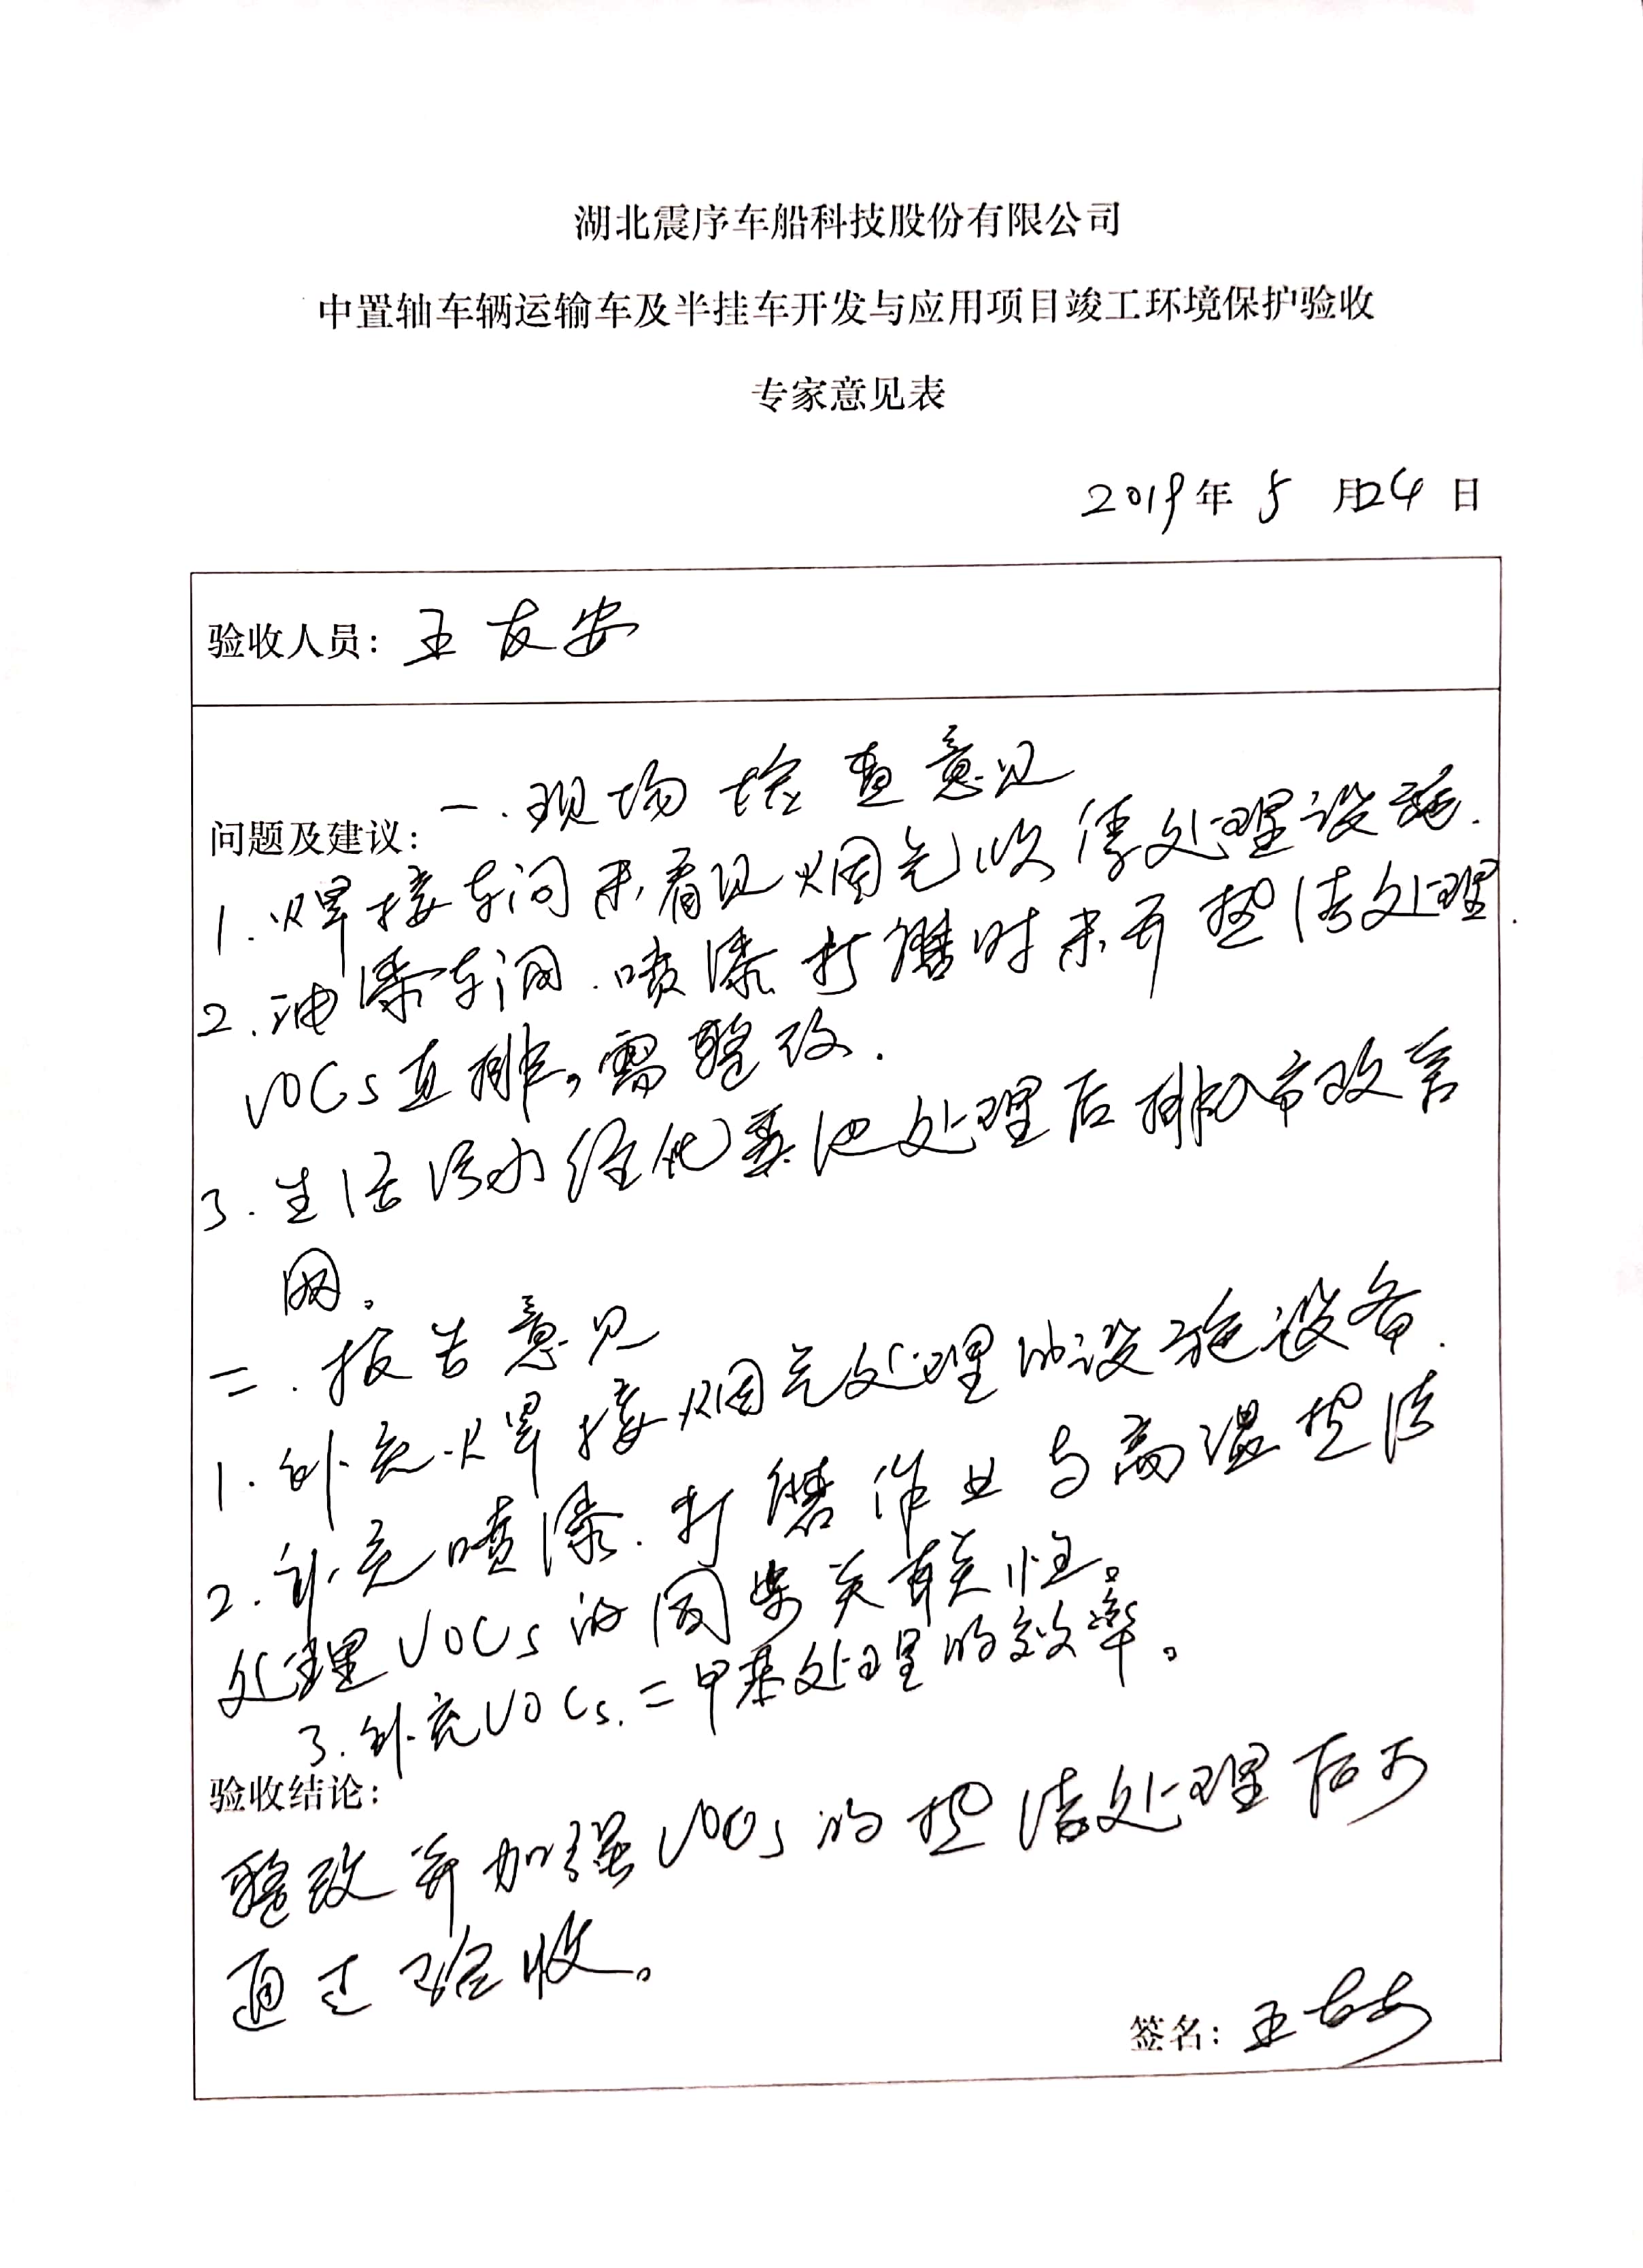 湖北震序车船科技股份有限公司
中置轴车辆运输车及半挂车开发与应用项目竣工环境保护验收
专家意见表
2019年 5 月24 日
验收人员：王友安
问题及建议：一.现场检查意见
1.焊接车间未看见烟气收集处理设施.
2.油漆车间.喷漆打磨时未开 处理.
VOCs直排,需整改.
3.生活污水经化粪池处理后排入市政管
网。
二.报告意见
1.补充焊接烟气处理的设施设备.
2.补充喷漆.打磨作业与高温
处理VOCs的 关联性。
3.补充VOCs.二甲苯处理的效率。
验收结论：
整改并加强VOCs的 处理后可
通过验收。
签名：王友安